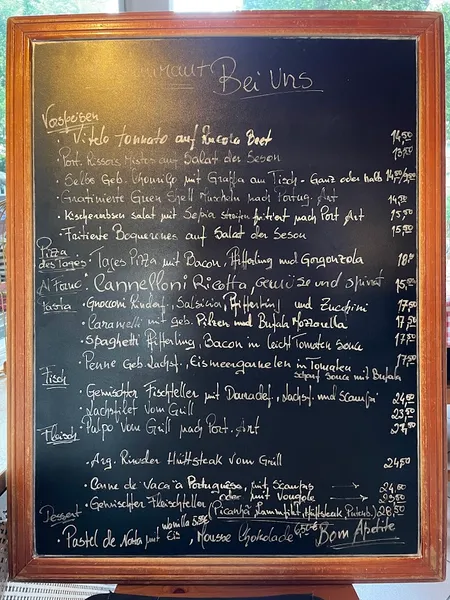 Restaurant Bei Uns
Vorspeisen
· Vitelo Tonnato auf Rucola Beet 14,50
· Port. Rissois Mistos auf Salat der Seson 13,50
· Selbs Geb. Chouriço mit Grappa am Tisch - Ganz oder halb
· Gratinierte Green Shell Muscheln nach Portug. Art
· Kichererbsen salat mit Sepia streifen fritiert nach Port Art 15,50
· Fritierte Boquerones auf Salat der Seson 15,50
Pizza des Tages · Tages Pizza mit Bacon, Pfifferling und Gorgonzola
Al Forno · Cannelloni Ricotta, gemüse und spinat
Pasta · Gnocconi Rinderf., Salsicia, Pfifferling und Zucchini 17,50
· Caramelli mit geb. Pilzen und Bufala Mozzarella 17,50
· Spaghetti Pfifferling, Bacon in leicht Tomaten Souce
· Penne Geb. Lachsf., Eismeergarnelen in Tomaten 17,50
scharf Souce mit Bufala
Fisch
· Gemischter Fischteller mit Doradef., Lachsf. und Scampi 24,50
· Lachsfilet Vom Grill 23,50
· Pulpo Vom Grill nach Port. Art
Fleisch
· Arg. Rinder Hüftsteak Vom Grill 24,50
· Carne de Vaca a Portuguesa, mit Scampis 24,50
oder mit Vongole
· Gemischter Fleischteller (Picanha, Lammfilet, Hüftsteak, Putenb.) 28,50
Dessert
· Pastel de Nata mit Vanille Eis, Mousse Chokolade Bom Apetite